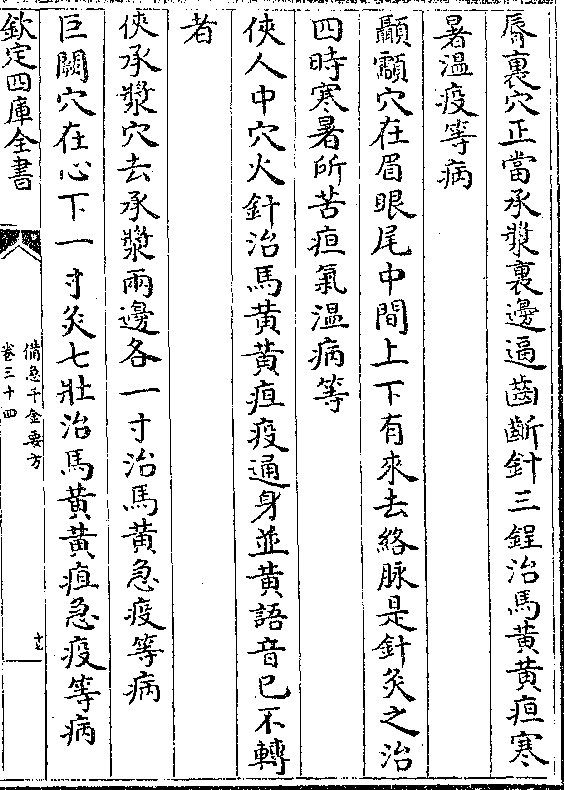 脣裏穴正當承漿裏邊逼齒齗針三鋥治馬黄黄疸寒
暑溫疫等病
顳顬穴在眉眼尾中間上下有來去絡脉是針灸之治
四時寒暑所苦疸氣溫病等
俠人中穴火針治馬黄黄疸疫通身並黄語音已不轉
者
俠承漿穴去承漿兩邊各一寸治馬黄急疫等病
巨闕穴在心下一寸灸七壯治馬黄黄疸急疫等病
欽定四庫全書
備急千金要方
卷三十四